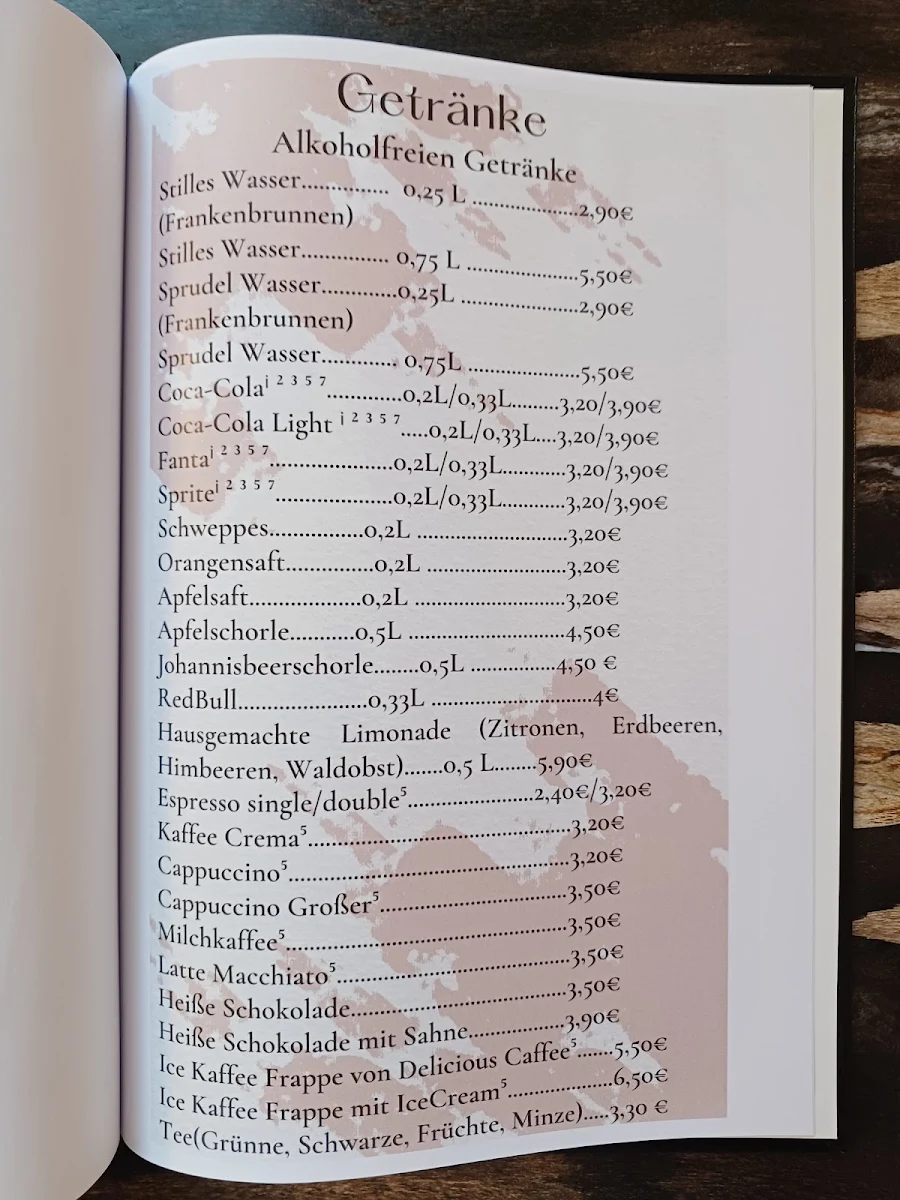 Getränke
Alkoholfreien Getränke
Stilles Wasser............... 0,25 L ....................2,90€
(Frankenbrunnen)
Stilles Wasser............... 0,75 L .....................5,50€
Sprudel Wasser.............0,25L ......................2,90€
(Frankenbrunnen)
Sprudel Wasser............. 0,75L .....................5,50€
Coca-Cola¹ ² ³ ⁵ ⁷.............0,2L/0,33L.........3,20/3,90€
Coca-Cola Light ¹ ² ³ ⁵ ⁷.....0,2L/0,33L....3,20/3,90€
Fanta¹ ² ³ ⁵ ⁷.....................0,2L/0,33L............3,20/3,90€
Sprite¹ ² ³ ⁵ ⁷....................0,2L/0,33L............3,20/3,90€
Schweppes................0,2L ...........................3,20€
Orangensaft...............0,2L .........................3,20€
Apfelsaft...................0,2L ...........................3,20€
Apfelschorle...........0,5L ............................4,50€
Johannisbeerschorle........0,5L ...............4,50 €
RedBull......................0,33L .............................4€
Hausgemachte Limonade (Zitronen, Erdbeeren,
Himbeeren, Waldobst).......0,5 L.......5,90€
Espresso single/double⁵......................2,40€/3,20€
Kaffee Crema⁵.............................................3,20€
Cappuccino⁵................................................3,20€
Cappuccino Großer⁵................................3,50€
Milchkaffee⁵................................................3,50€
Latte Macchiato⁵........................................3,50€
Heiße Schokolade.....................................3,50€
Heiße Schokolade mit Sahne.................3,90€
Ice Kaffee Frappe von Delicious Caffee⁵.......5,50€
Ice Kaffee Frappe mit IceCream⁵..................6,50€
Tee(Grünne, Schwarze, Früchte, Minze).....3,30 €